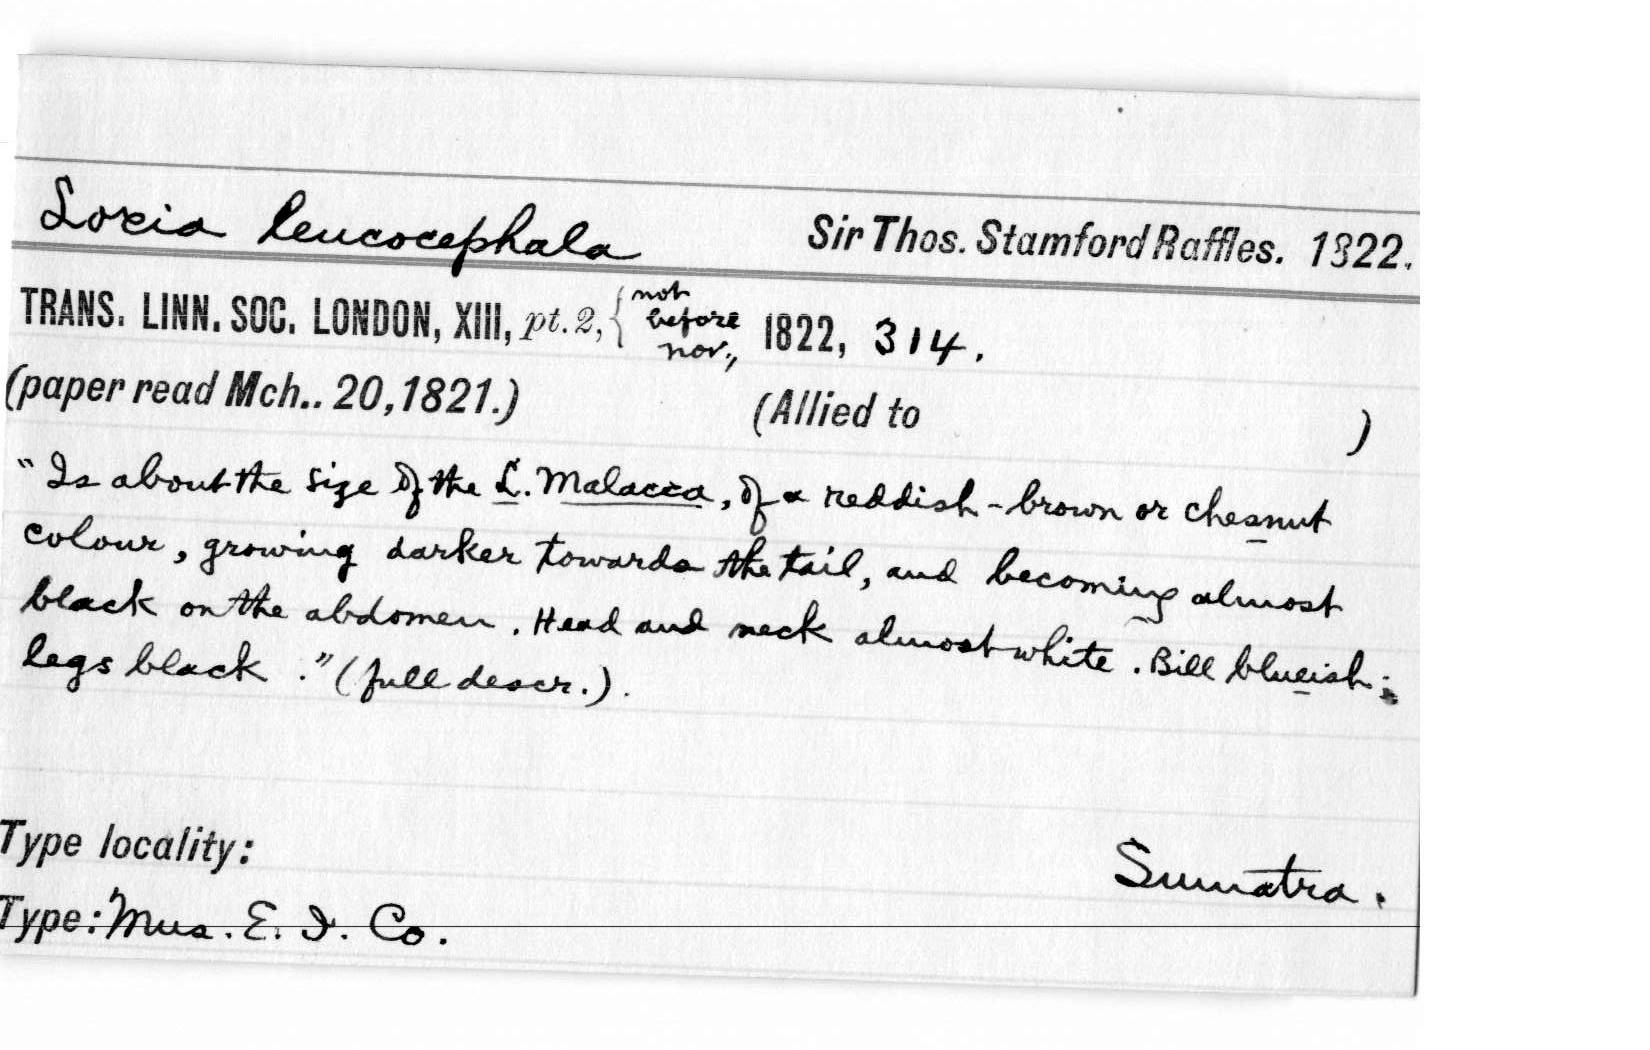 Loxia leucocephala Sir Thos. Stamford Raffles. 1822.
TRANS. LINN. SOC. LONDON, XIII, pt. 2, { not before nov., 1822, 314.
(paper read Mch.. 20, 1821.) (Allied to )
"Is about the size of the L. Malacca, of a reddish-brown or chesnut
colour, growing darker towards the tail, and becoming almost
black on the abdomen. Head and neck almost white. Bill blueish;
legs black." (full descr.).
Type locality: Sumatra.
Type: Mus. E. I. Co.